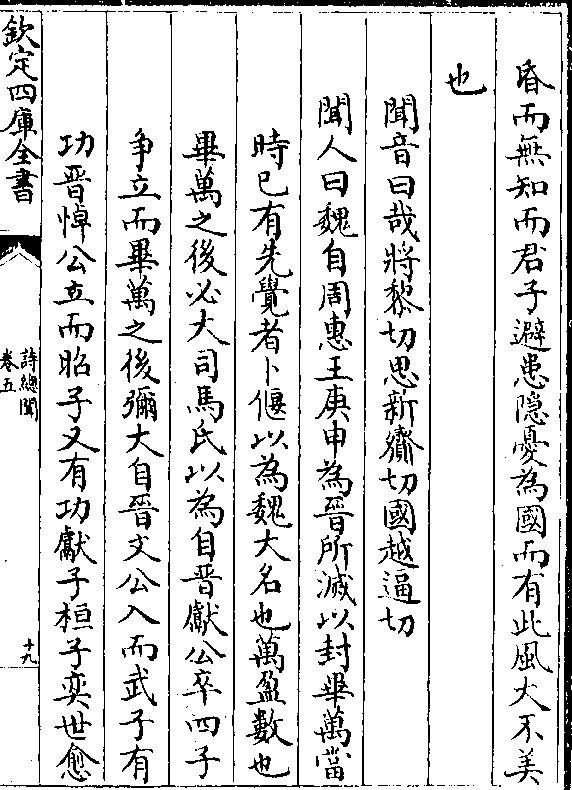 昏而無知而君子避患隠憂為國而有此風大不美
也
聞音曰哉將黎切思新齎切國越逼切
聞人曰魏自周惠王庚申為晉所滅以封畢萬當
時已有先覺者卜偃以為魏大名也萬盈數也
畢萬之後必大司馬氏以為自晉獻公卒四子
争立而畢萬之後彌大自晉文公入而武子有
功晉悼公立而昭子又有功獻子桓子奕世愈
欽定四庫全書
詩總聞
卷五
十九